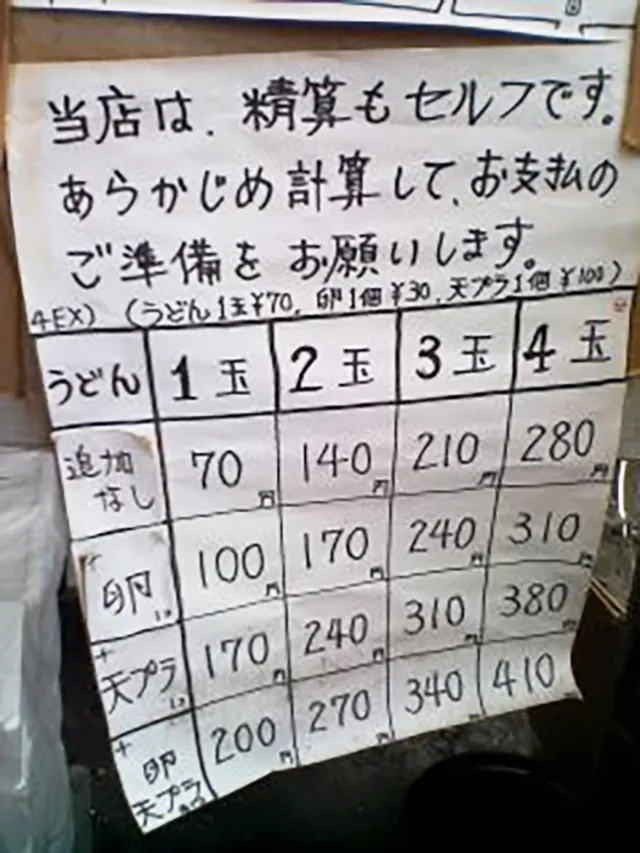 当店は、精算もセルフです。
あらかじめ計算して、お支払の
ご準備をお願いします。
(うどん1玉¥70, 卵1個¥30, 天プラ1個¥100)
うどん 1玉 2玉 3玉 4玉
追加なし 70円 140円 210円 280円
+卵 100円 170円 240円 310円
+天プラ 170円 240円 310円 380円
+卵天プラ 200円 270円 340円 410